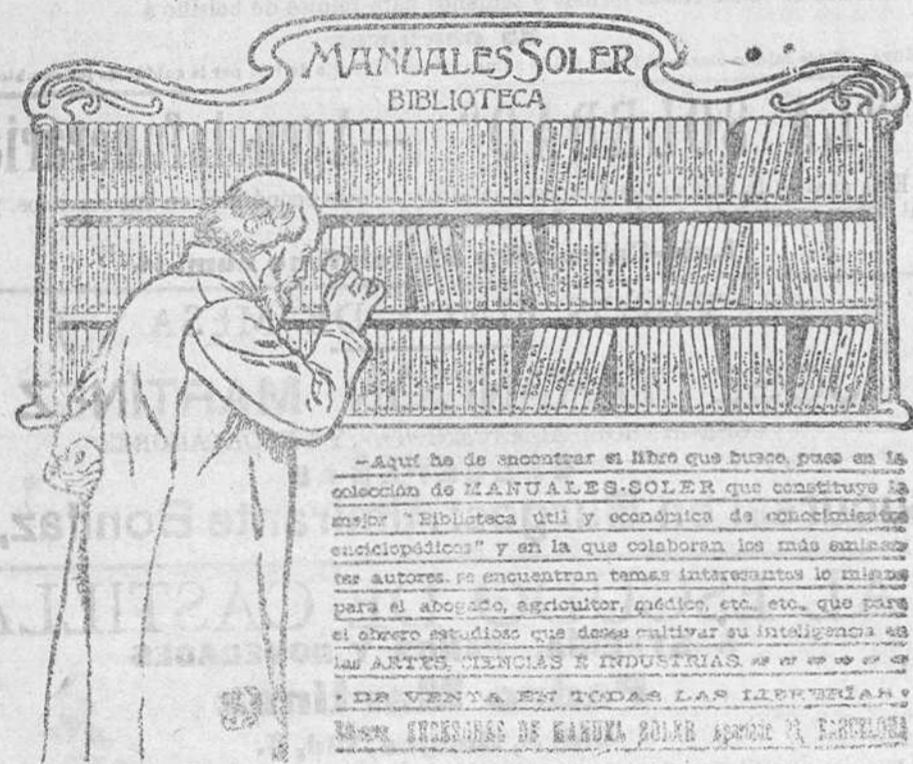 MANUALES SOLER
BIBLIOTECA
—Aquí he de encontrar el libro que busco, pues en la
colección de MANUALES-SOLER que constituye la
mejor "Biblioteca útil y económica de conocimientos
enciclopédicos" y en la que colaboran los más eminen-
tes autores, se encuentran temas interesantes lo mismo
para el abogado, agricultor, médico, etc., etc., que para
el obrero estudioso que desee cultivar su inteligencia en
las ARTES, CIENCIAS E INDUSTRIAS.
DE VENTA EN TODAS LAS LIBRERÍAS
SUCESORES DE MANUEL SOLER Apartado BARCELONA